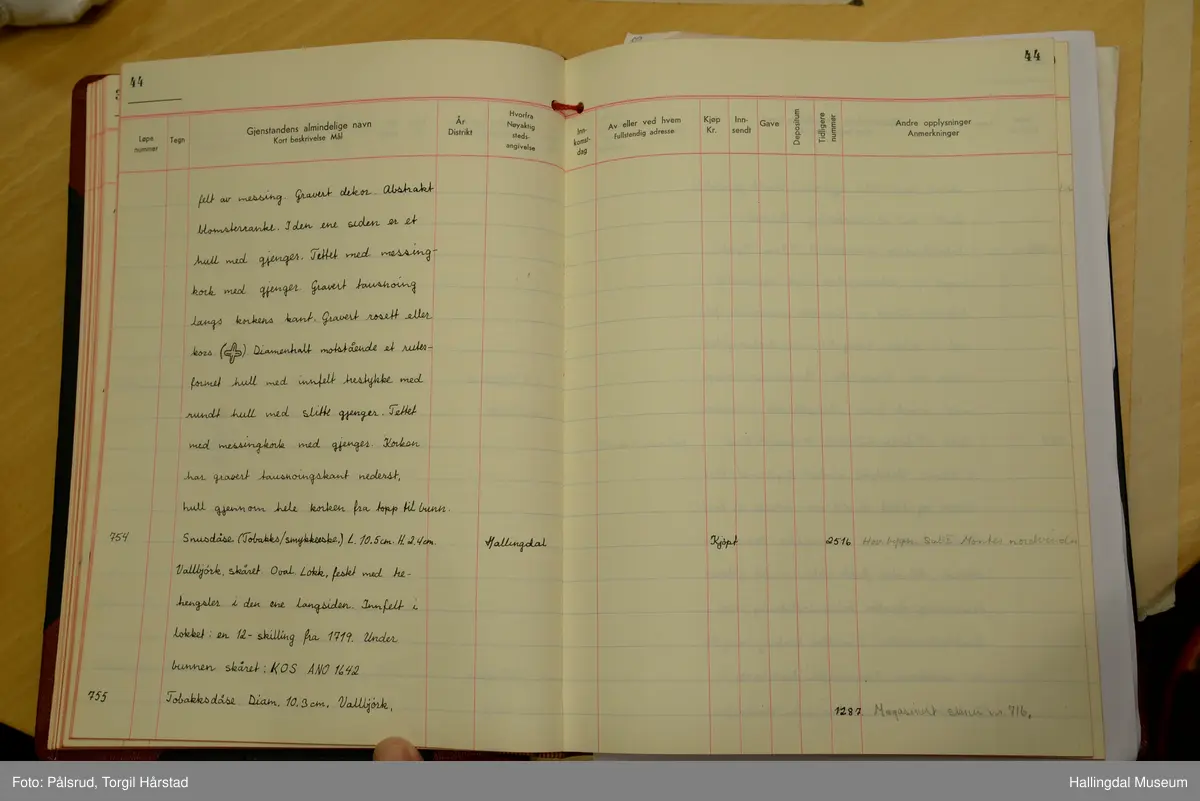 44
44
Løpe nummer
Tegn
Gjenstandens almindelige navn
Kort beskrivelse Mål
År
Distrikt
Hvorfra
Nøyaktig
steds-
angivelse
Inn-
komst-
dag
Av eller ved hvem
fullstendig adresse
Kjøp
Kr.
Inn-
sendt
Gave
Depositum
Tidligere
nummer
Andre opplysninger
Anmerkninger
felt av messing. Gravert dekor. Abstrakt
blomsterranke. I den ene siden er et
hull med gjenger. Tettet med messing-
kork med gjenger. Gravert tausnoing
langs korkens kant. Gravert rosett eller
kors ( ) Diamentralt motstående et ruter-
formet hull med innfelt trestykke med
rundt hull med slitte gjenger. Tettet
med messingkork med gjenger. Korken
har gravert tausnoingskant nederst,
hull gjennom hele korken fra topp til bunn.
754 Snusdåse (Tobakks/smykkeeske,) L. 10.5cm. H. 2.4cm. Hallingdal Kjøpt 2516
Vallbjörk, skåret. Oval. Lokk, festet med he-
hengsler i den ene langsiden. Innfelt i
lokket: en 12-skilling fra 1719. Under
bunnen skåret: KOS ANO 1642
755 Tobakksdåse Diam. 10.3cm. Vallbjörk, 1287 Magasinert nr. 716.
Foto: Pålsrud, Torgil Hårstad
Hallingdal Museum